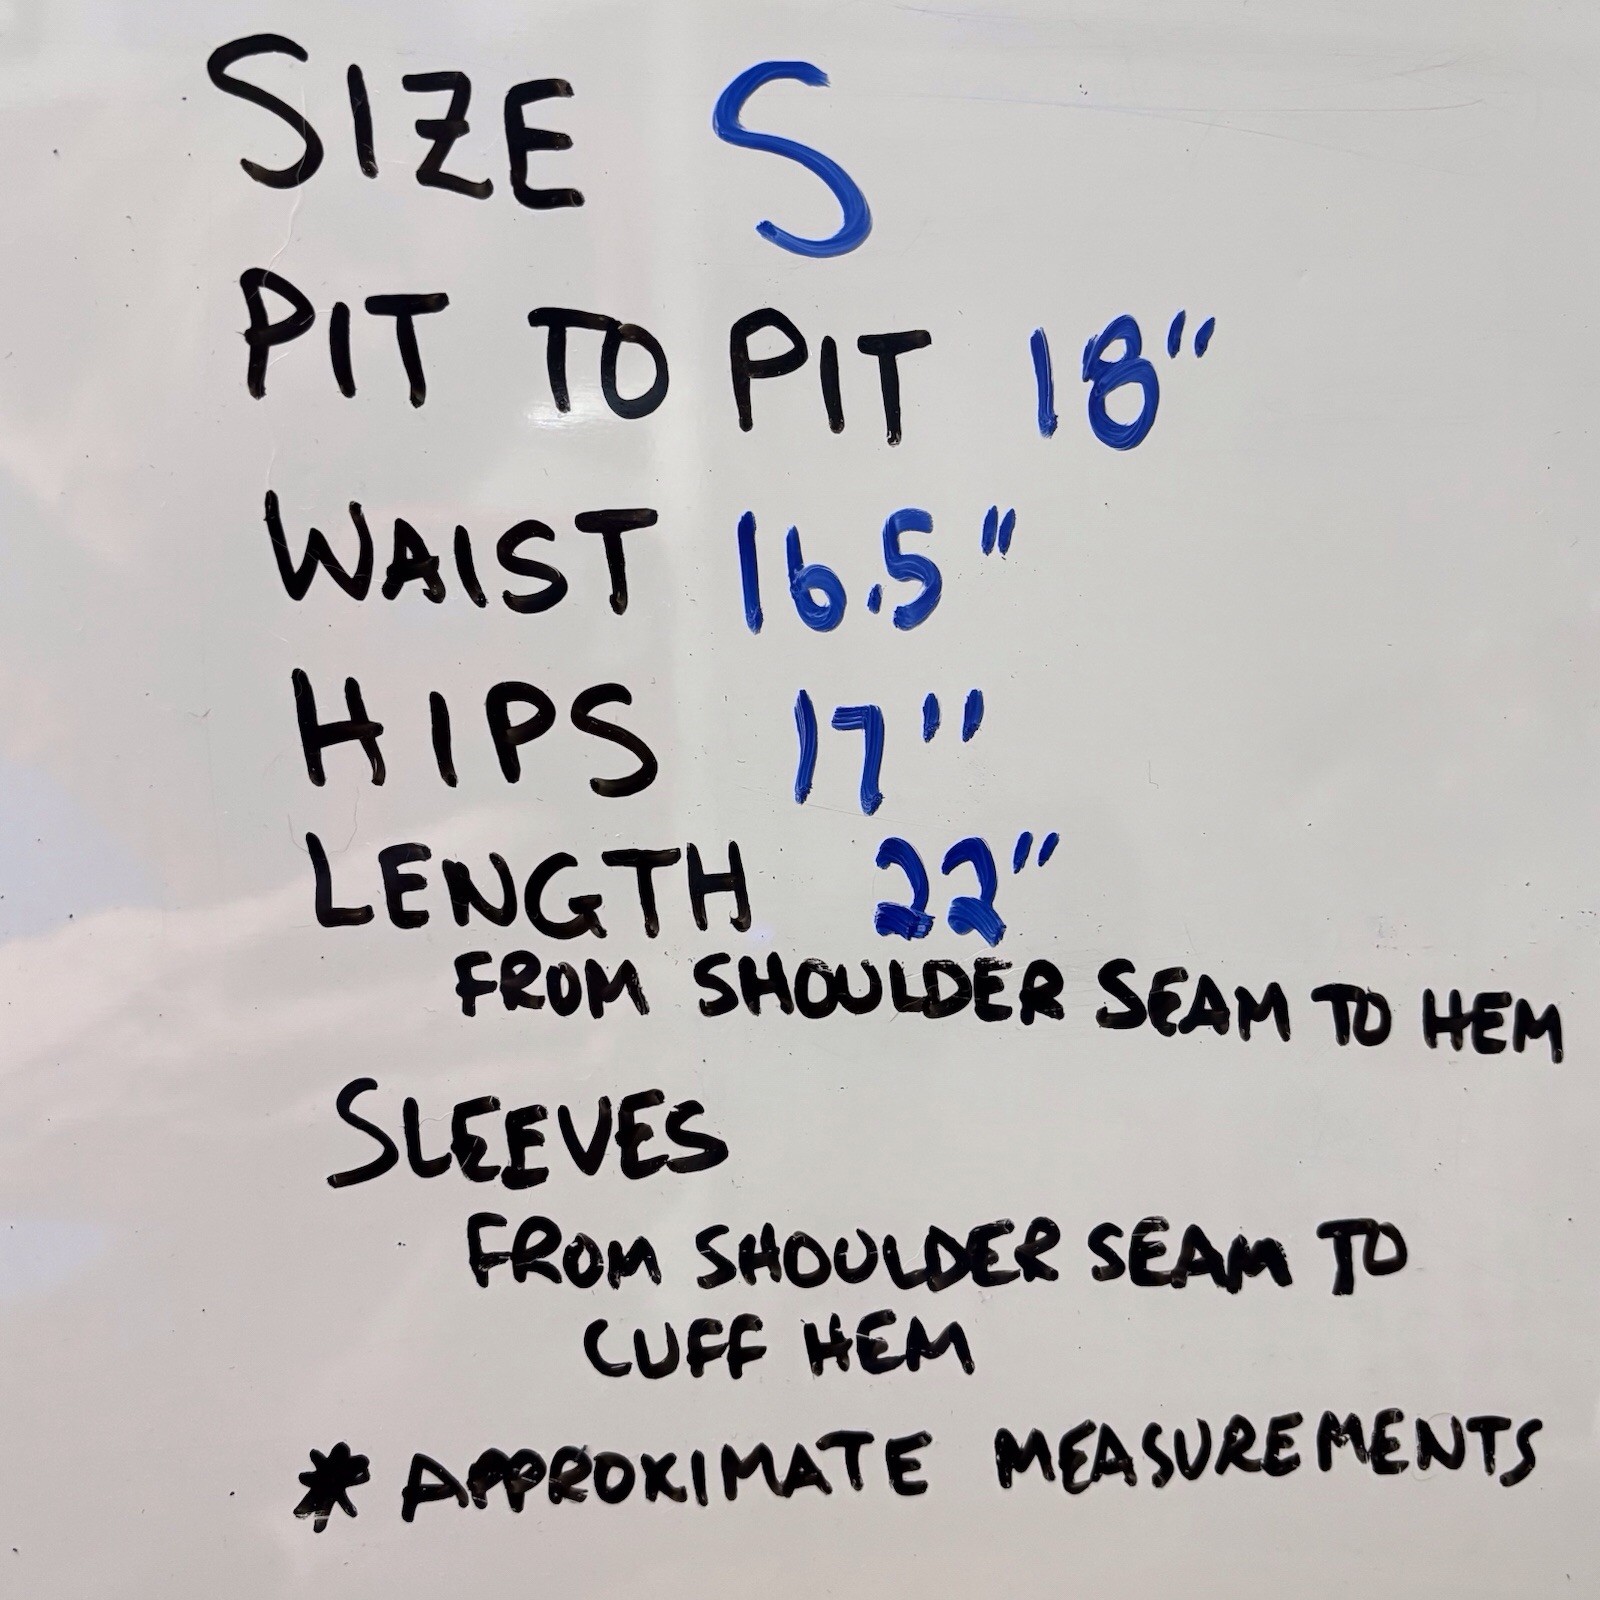 SIZE S
PIT TO PIT 18"
WAIST 16.5"
HIPS 17"
LENGTH 22"
FROM SHOULDER SEAM TO HEM
SLEEVES
FROM SHOULDER SEAM TO
CUFF HEM
* APPROXIMATE MEASUREMENTS